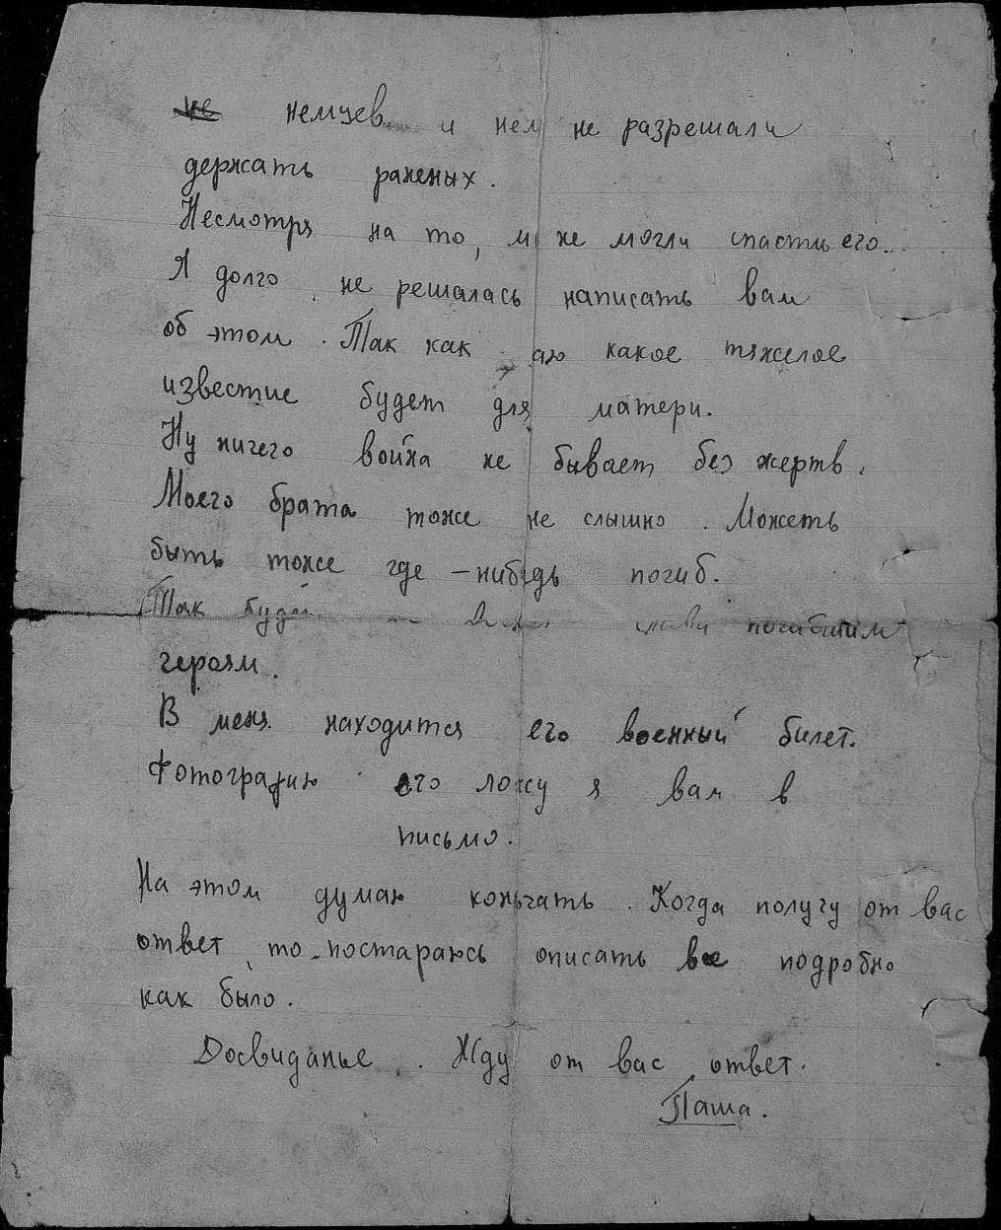 немцев и нем не разрешали
держать раненых.
Несмотря на то, м не могли спасти его..
Я долго не решалась написать вам
об этом. Так как аю какое тяжелое
известие будет для матери.
Ну ничего война не бывает без жертв.
Моего брата тоже не слышно. Можеть
быть тоже где-нибудь погиб.
Так погибшим
героям.
В меня находится его военный билет.
Фотографию его ложу я вам в
письмо.
На этом думаю коньчать. Когда получу от вас
ответ то постараюсь описать все подробно
как было.
Досвиданье. Жду от вас ответ.
Паша.